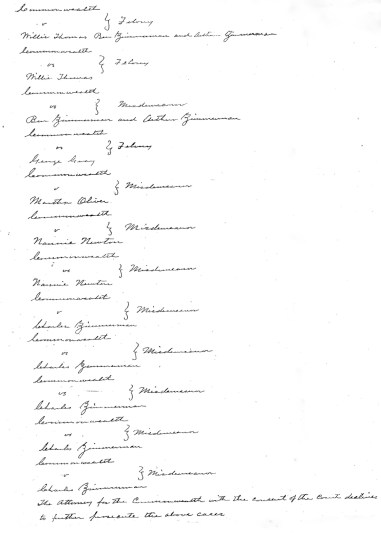 Commonwealth
v } Felony
Willie Thomas Ben Zimmerman and Arthur Zimmerman
Commonwealth
vs } Felony
Willie Thomas
Commonwealth
vs } Misdemeanor
Ben Zimmerman and Arthur Zimmerman
Commonwealth
vs } Felony
George Gray
Commonwealth
v } Misdemeanor
Martha Oliver
Commonwealth
v } Misdemeanor
Nannie Newton
Commonwealth
vs } Misdemeanor
Nannie Newton
Commonwealth
v } Misdemeanor
Charles Zimmerman
Commonwealth
vs } Misdemeanor
Charles Zimmerman
Commonwealth
vs } Misdemeanor
Charles Zimmerman
Commonwealth
vs } Misdemeanor
Charles Zimmerman
Commonwealth
v } Misdemeanor
Charles Zimmerman
The Attorney for the Commonwealth with the consent of the Court declines
to further prosecute the above cases